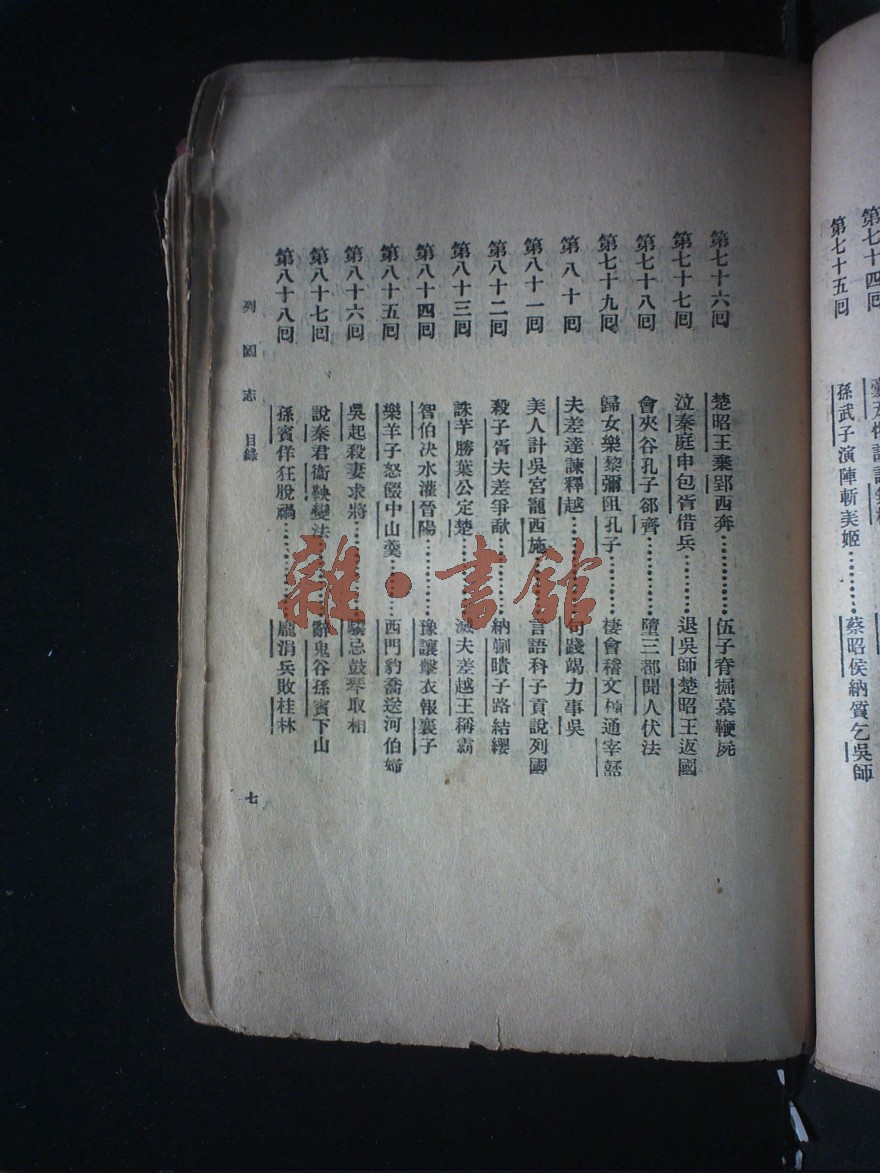 第七十四回
第七十五回 孫武子演陣斬美姬…………蔡昭侯納質乞吳師
第七十六回 楚昭王棄郢西奔…………伍子胥掘墓鞭屍
第七十七回 泣秦庭申包胥借兵…………退吳師楚昭王返國
第七十八回 會夾谷孔子卻齊…………墮三都聞人伏法
第七十九回 歸女樂黎彌阻孔子…………棲會稽文種通宰嚭
第八十回 夫差違諫釋越…………句踐竭力事吳
第八十一回 美人計吳宮寵西施…………言語科子貢說列國
第八十二回 殺子胥夫差爭歃…………納蒯瞶子路結纓
第八十三回 誅芊勝葉公定楚…………滅夫差越王稱霸
第八十四回 智伯決水灌晉陽…………豫讓擊衣報襄子
第八十五回 樂羊子怒餟中山羹…………西門豹喬送河伯婦
第八十六回 吳起殺妻求將…………騶忌鼓琴取相
第八十七回 說秦君衞鞅變法…………辭鬼谷孫賓下山
第八十八回 孫賓佯狂脫禍…………龐涓兵敗桂林
列國志 目錄 七
雜·書館